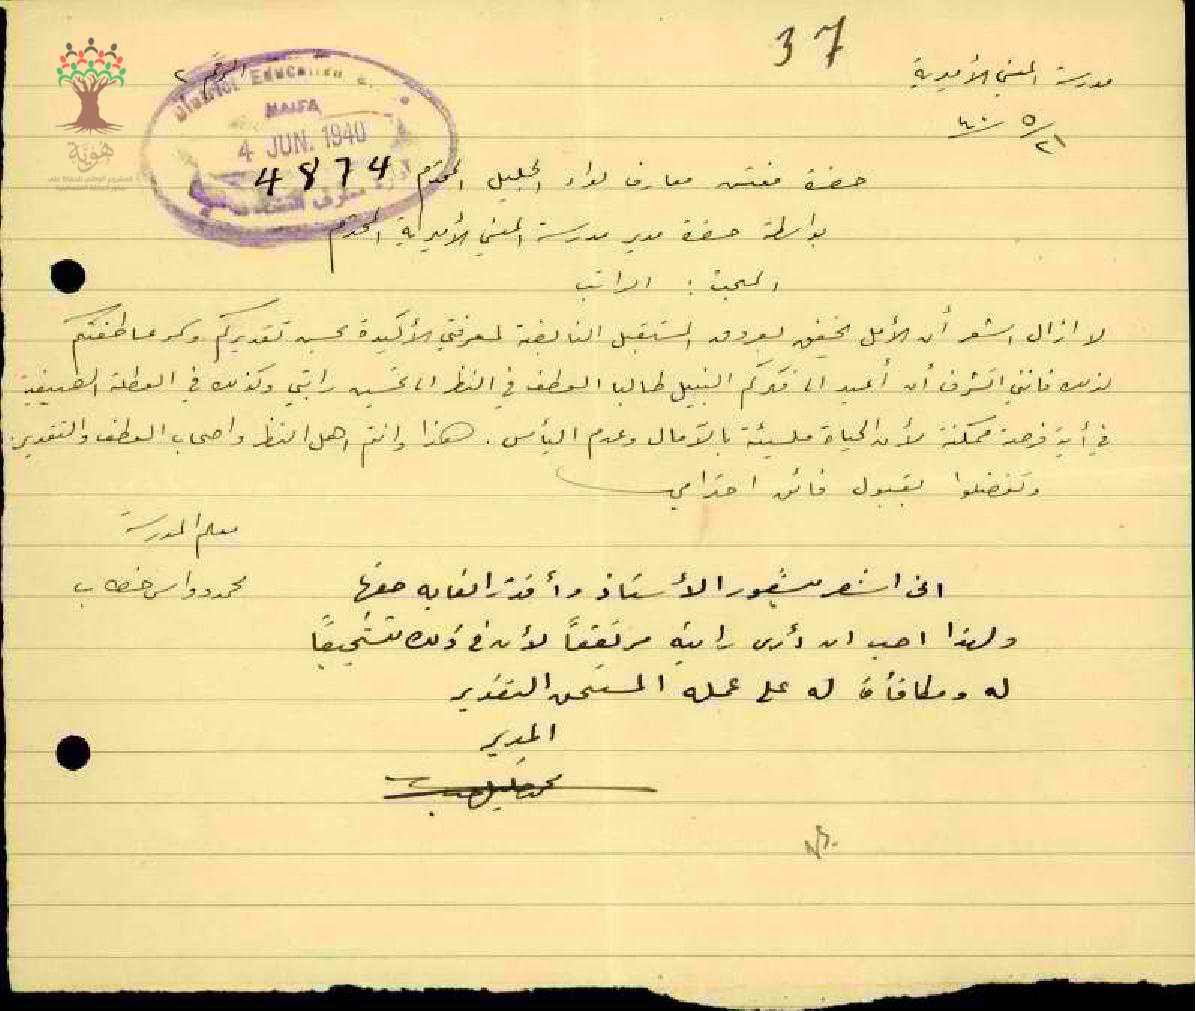 37
مدرسة المغني الأميرية
٢١/٥/٤٠
الرقم ٢
District Education
HAIFA
4 JUN. 1940
4874
حضرة مفتش معارف لواء الجليل المحترم
بواسطة حضرة مدير مدرسة المغني الأميرية المحترم
المبحث : الراتب
لا ازال اشعر أن الأمل يخفق لمعرفتي الأكيدة بحسن تقديركم وكبر عاطفتكم
لذلك فانني اتشرف أن أعيد الى فكركم النبيل طالبا العطف في النظر الى تحسين راتبي وكذلك في العطلة الصيفية
في أية فرصة ممكنة لأن الحياة مليئة بالآمال وعدم اليأس . هذا وانتم اهل النظر واصحاب العطف والتقدير.
وتفضلوا بقبول فائق احترامي
معلم المدرسة
محمود خطاب
انى اشعر بشعور الأستاذ وأقدر اتعابه حقها
ولهذا احب ان أرى راتبه مرتفعاً لأن في ذلك تشجيعاً
له ومكافأة له على عمله المستحق التقدير
المدير
هوية